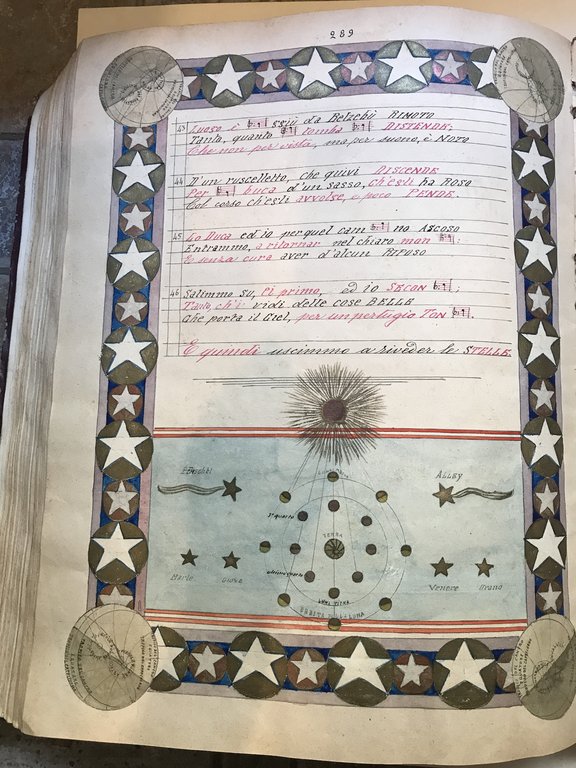 289
43 Luoso è ssiù da Belzebù RIMOTO
Tanto, quanto tomba DISTENDE;
Che non per vista, ma per suono, è NOTO
44 D'un ruscelletto, che quivi DISCENDE
Per buca d'un sasso, Ch'esli ha ROSO
Col corso ch'esli avvolse, e poco PENDE.
45 Lo Duca ed io per quel cam no ASCOSO
Entrammo, a ritornar nel chiaro mon ;
E senza cura aver d'alcun RIPOSO
46 Salimmo su, ei primo, ed io SECON ;
Tanto, ch'i' vidi delle cose BELLE
Che porta il Ciel, per un pertugio TON .
E quindi uscimmo a riveder le STELLE.
ALLEY
1º quarto
TERRA
ultimo quarto
Marte Giove Venere Urano
LUNA PIENA
ORBITA DELLA LUNA